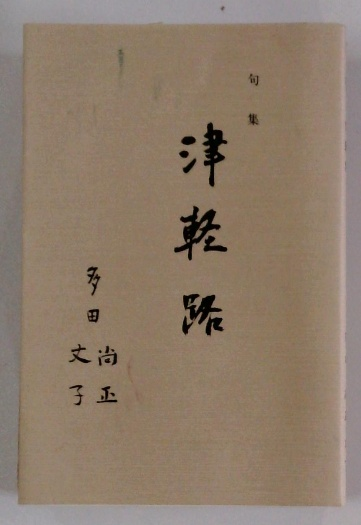 句集
津軽路
多田 尚正
文子